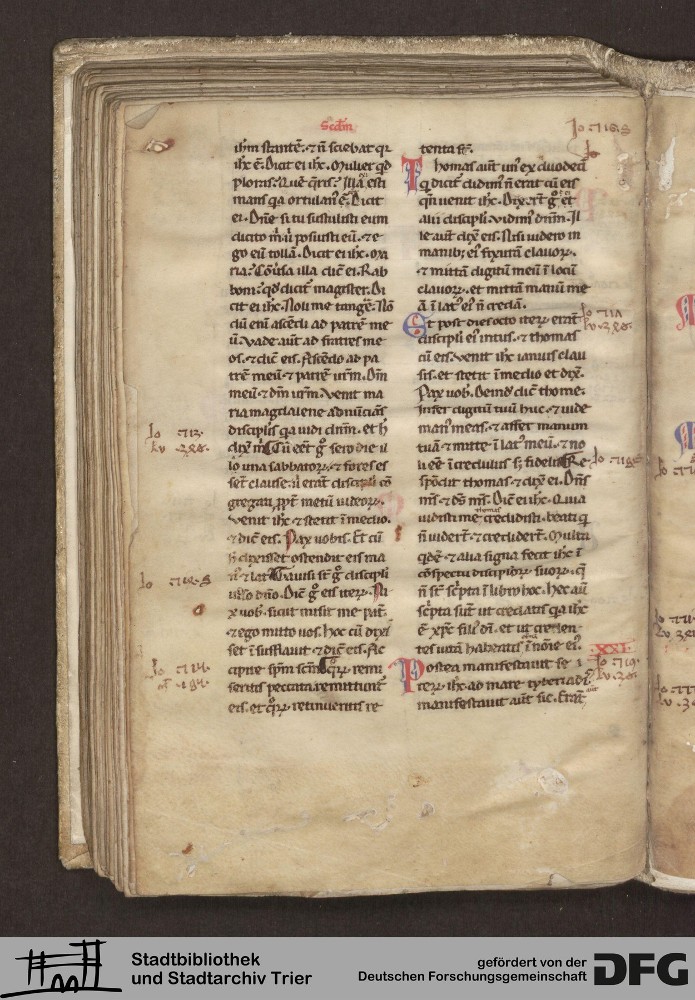 Scd'm
ih'm stantē. ⁊ ñ sciebat qr
ih'c ē. Dicit ei ih'c. Mulier qd
ploras? Quē q̄ris? Illa esti
mans qa ortulan' ē. dicit
ei. Dn̄e si tu sustulisti eum
dicito m̄ ubi posuisti eū. ⁊ e
go eū tollā. Dicit ei ih'c. Ma
ria. Cōu'sa illa dic̄ ei. Rab
boni. qd dicit magister. Di
cit ei ih'c. Noli me tangē. Nō
dū eni ascēdi ad patrē me
ū. Vade aut ad fratres me
os. ⁊ dic eis. Ascēdo ad pa
trē meū ⁊ patrē vr̄m. Dm̄
meū ⁊ dm̄ vr̄m. Venit ma
ria magdalene adnūcians
discip'lis qa vidi dn̄m. et h'
dix' m̄. Cū eēt g̊ sero die il
lo una sabbator. ⁊ fores es
sēt clause ubi erāt discipuli cō
gregati pp̄t metū iudeor.
venit ih'c ⁊ stetit ī medio.
⁊ dic̄ eis. Pax vobis. Et cū
h' dixisset ostendit eis ma
n' ⁊ lat'. Gavisi st̄ g̊ discip'li
viso dn̄o. Dic̄ g̊ eis iter. Pa
x vob'. sicut misit me pat'.
⁊ ego mitto vos. hoc cū dixi
set īsufflavit ⁊ dic̄ eis. Ac
cipite sp̄m sc̄m. Quor remi
seritis peccata remittunt'
eis. et quor retinueritis re
tenta st̄.
Thomas aut un' ex duodeci
q dicit' didim' ñ erat cū eis
qn̄ venit ih'c. Dix'er̄t g̊ ei
alii discip'li. vidim' dn̄m. Il
le aut dix' eis. Nisi videro in
manib; ei' fixurā clavor.
⁊ mittā digitū meū ī locū
clavor. et mittā manū me
ā ī lat' ei' ñ credā.
Et post dies octo iter erāt
discipli ei' intus. ⁊ thomas
cū eis. venit ih'c ianuis clau
sis. et stetit ī medio et dix'.
Pax vob'. Deind' dic̄ thome.
Infer digitū tuū huc. ⁊ vide
man' meas. ⁊ affer manum
tuā ⁊ mitte ī lat' meū. ⁊ no
li eē īcredulus s; fidelis. Re
spōdit thomas ⁊ dix' ei. Dn̄s
m's ⁊ ds m's. Dic̄ ei ih'c. Quia
vidisti me thomas credidisti. beati q
ñ vider̄t ⁊ credider̄t. Multa
qdē ⁊ alia signa fecit ih'c ī
cōspectu discipulor suor. q
ñ st̄ sc'pta ī libro hoc. Hec aut
sc'pta sūt ut credatis qa ih'c
ē xp̄c fili' di. et ut creden
tes vitā habeatis ī noīe ei'.
XXI.
Postea manifestavit se ī
ter ih'c ad mare tyberiadis.
manifestavit aut sic. Erāt
Stadtbibliothek
und Stadtarchiv Trier
gefördert von der
Deutschen Forschungsgemeinschaft
DFG